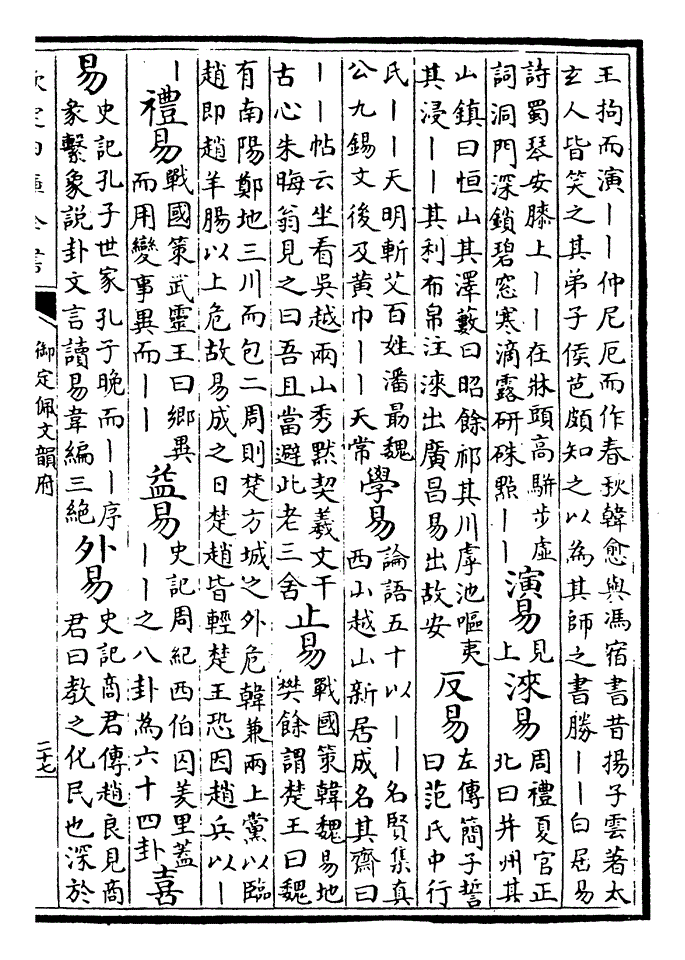 王拘而演丨丨仲尼厄而作春秋韓愈與馮宿書昔揚子雲著太
玄人皆笑之其弟子侯芭頗知之以為其師之書勝丨丨白居易
詩蜀琴安膝上丨丨在牀頭高駢步虛
詞洞門深鎖碧窓寒滴露研硃㸃丨丨
演易
見
上
淶易
周禮夏官正
北曰并州其
山鎮曰恒山其澤藪曰昭餘祁其川虖池嘔夷
其浸丨丨其利布帛注淶出廣昌易出故安
反易
左傳簡子誓
曰范氏中行
氏丨丨天明斬艾百姓潘最魏
公九錫文後及黃巾丨丨天常
學易
論語五十以丨丨名賢集真
西山越山新居成名其齋曰
丨丨帖云坐看吳越兩山秀黙契羲文千
古心朱晦翁見之曰吾且當避此老三舍
止易
戰國策韓魏易地
樊餘謂楚王曰魏
有南陽鄭地三川而包二周則楚方城之外危韓兼兩上黨以臨
趙即趙羊腸以上危故易成之日楚趙皆輕楚王恐因趙兵以丨
丨
禮易
戰國策武靈王曰鄉異
而用變事異而丨丨
益易
史記周紀西伯囚羑里蓋
丨丨之八卦為六十四卦
喜
易
史記孔子世家孔子晚而丨丨序
彖繫象說卦文言讀易韋編三絶
外易
史記商君傳趙良見商
君曰教之化民也深於
欽定四庫全書
御定佩文韻府
二十七